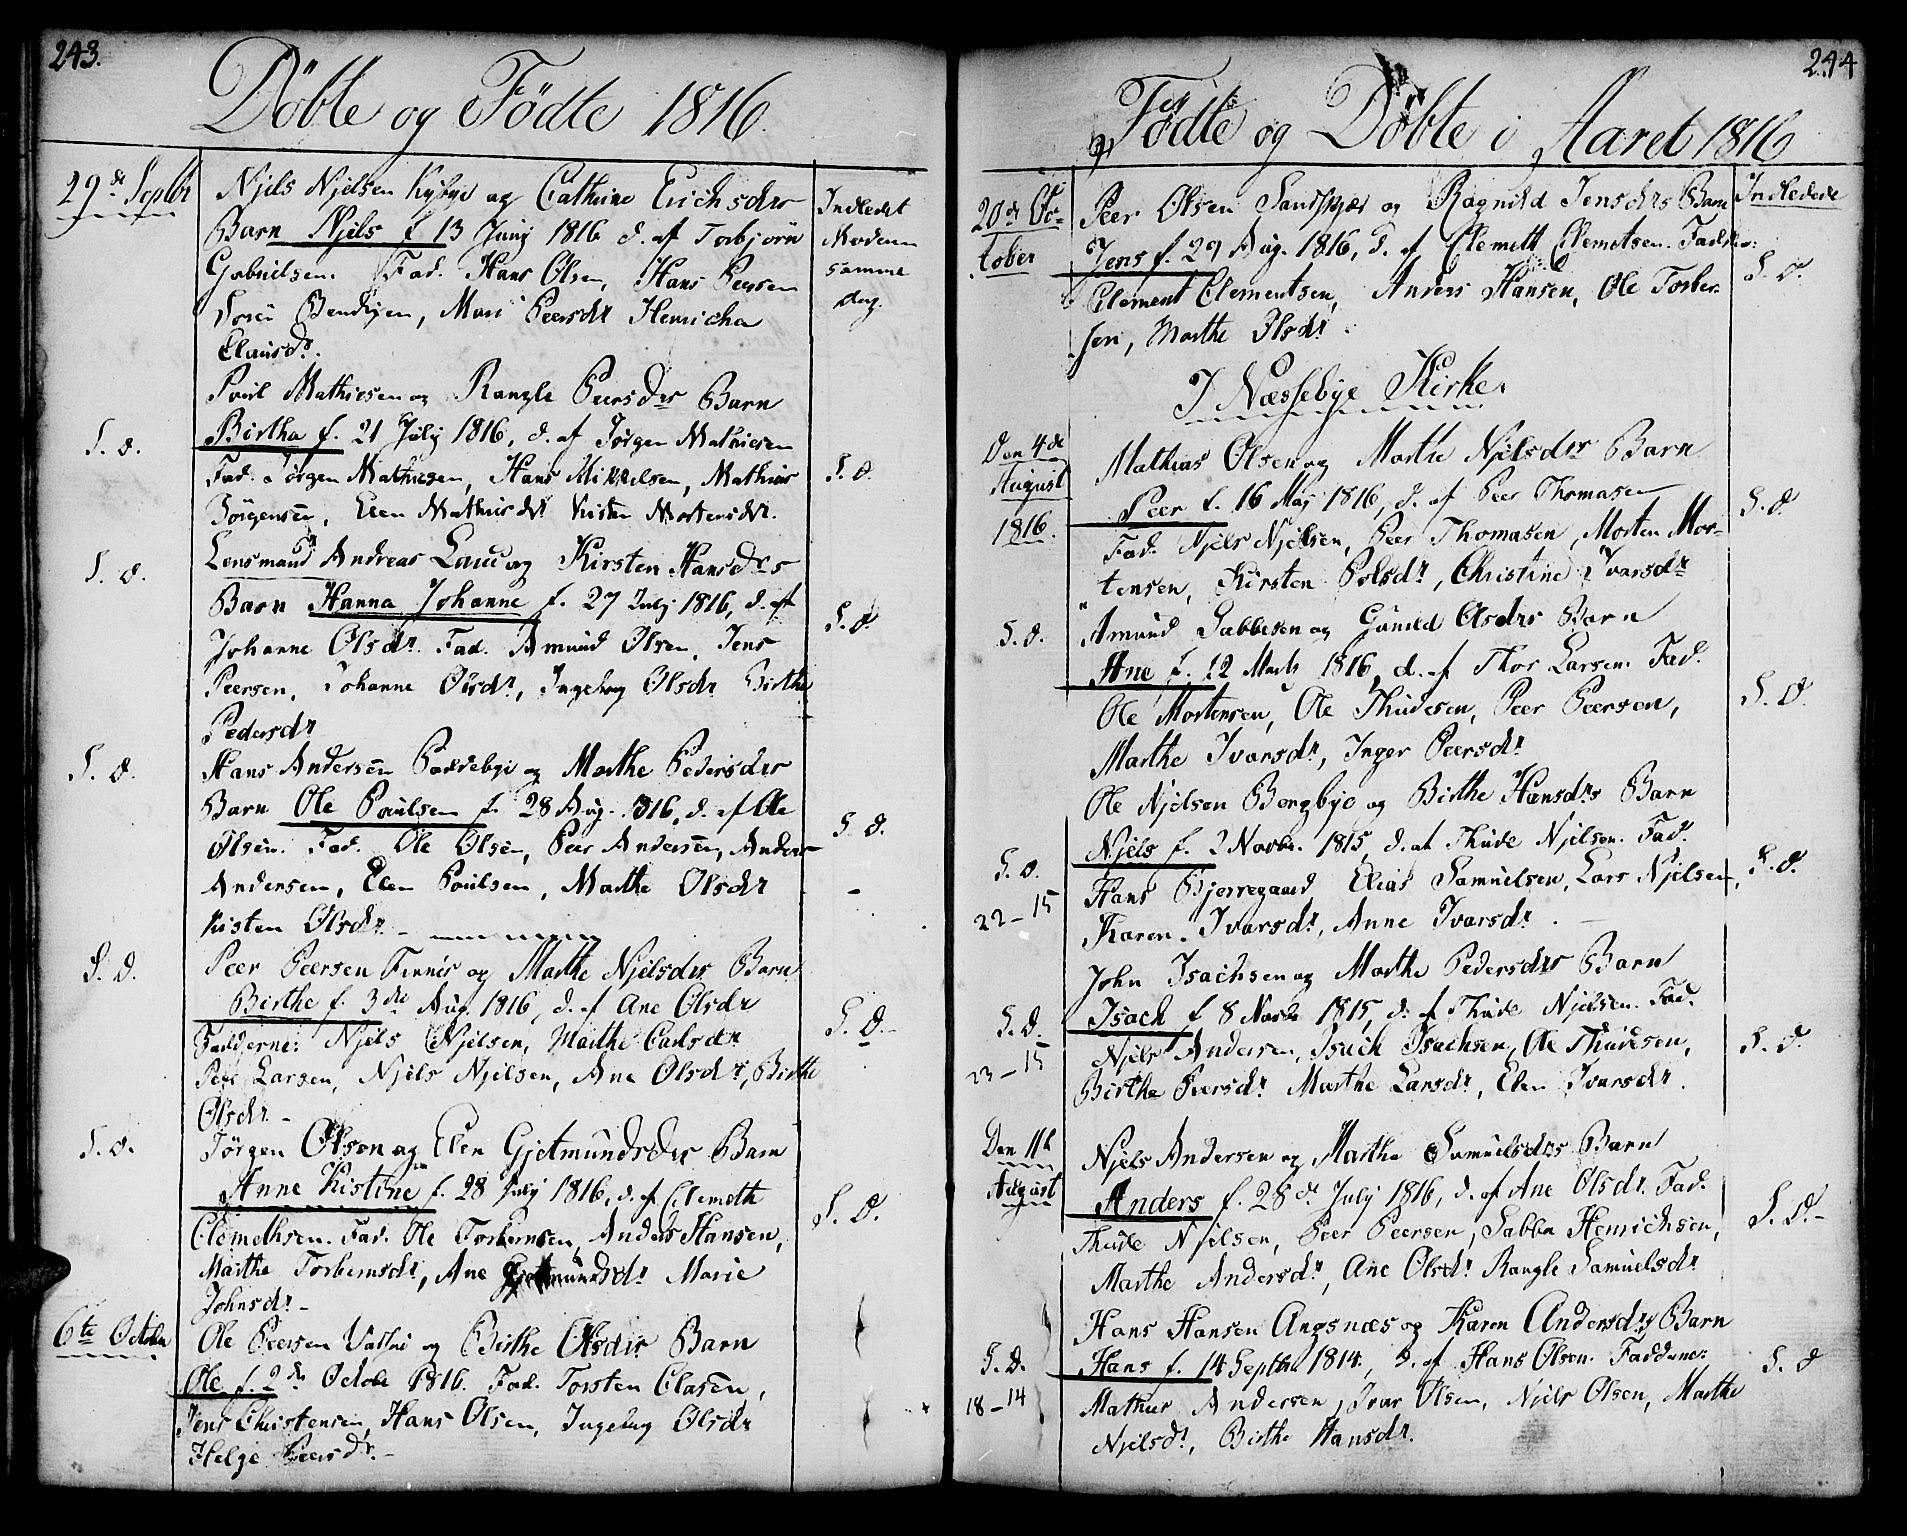 243.
Döbte og Födte 1816.
29de Septbr
Njels Njelsen og Cathrine Erichsdrs
Indledet
Barn Njels f. 13 Junj 1816 d. af Torbjörn
Moderen
Fad. Hans Olsen, Hans Peersen
samme
Mari Peersdr Henricha
dag.
Clausdr.
Poul Mathiesen og Rangle Peersdrs Barn
S. D.
Birtha f. 21 Julj 1816, d. af Jörgen Mathiesen
Fad. Jörgen Mathiesen, Hans Mikkelsen, Mathias
S. D.
Jörgensen, Elen Mathiisdr Kisten Mortensdr.
Lensmand Andreas og Kirsten Hansdrs
S. D.
Barn Hanna Johanne f. 27 Julj 1816, d. af
S. D.
Johanne Olsdr. Fad. Amund Olsen, Jens
Peersen, Johanne Olsdr, Ingebog Olsdr Birthe
Pedersdr
S. D.
Hans Andersen og Marthe Pedersdrs
Barn Ole Poulsen f. 28 Aug. 1816, d. af Ole
S. D.
Olsen. Fad. Ole Olsen, Peer Andersen, Anders
Andersen, Elen Poulsen, Marthe Olsdr
Kisten Olsdr. -
S. D.
Peer Peersen og Marthe Njelsdrs Barn
Birthe f. 3die Aug. 1816, d. af Ane Olsdr
Fadderne: Njels Njelsen, Marthe Carlsdr
S. D.
Peer Larsen, Njels Njelsen, Ane Olsdr, Birthe
Olsdr. -
S. D.
Jörgen Olsen og Elen Gjetmundsdrs Barn
Anne Kistine f. 28 Julj 1816, d. af Clemeth
S. D.
Clemethsen. Fad. Ole Torbernsen, Anders Hansen,
Marthe Torbernsdr, Ane Gjetmundsdr Marie
Johnsdr -
6te October
Ole Peersen og Birthe Olsdrs Barn
Ole f. 2de Octobr 1816. Fad. Torsten Clasen,
Jens Christensen, Hans Olsen, Ingebog Olsdr
Helge Peersdr. -
244
Födte og Döbte i Aaret 1816
20de Oc-
Peer Olsen Sandskjær og Ragnild Jensdrs Barn
Indledede
tober
Jens f. 29 Aug. 1816, d. af Clemett Clemetsen. Fadder:
S. D.
Clement Clementsen, Anders Hansen, Ole Torber-
sen, Marthe Olsdr.
I Næssebye Kirke.
Den 4de
Mathias Olsen og Marthe Njelsdrs Barn
August
Peer f. 16 Maj 1816, d. af Peer Thomasen
S. D.
1816.
Fad. Njels Njelsen, Peer Thomasen, Morten Mor-
tensen, Kirsten Polsdr, Christine Ivarsdr
S. D.
Amund Sabbesen og Gunild Olsdrs Barn
Ane f. 12 Marts 1816, d. af Thor Larsen. Fad.
S. D.
Ole Mortensen, Ole Thudesen, Peer Peersen,
Marthe Ivarsdr, Inger Peersdr
Ole Njelsen Bergbye og Birthe Hansdrs Barn
S. D.
Njels f. 2 Novbr. 1815, d. af Thude Njelsen. Fad.
S. D.
22-15
Hans Bjerregaard Elias Samuelsen, Lars Njelsen,
Karen Ivarsdr, Anne Ivarsdr.
John Isachsen og Marthe Pedersdrs Barn
S. D.
Isach f. 8 Novbr 1815, d. af Thude Njelsen. Fad.
S. D.
23-15
Njels Andersen, Isach Isachsen, Ole Thudesen,
Birthe Peersdr Marthe Larsdr, Elen Ivarsdr.
Den 11te
Njels Andersen og Martha Samuelsdrs Barn
August
Anders f. 28de Julj 1816, d. af Ane Olsdr. Fad.
S. D.
Thude Njelsen, Peer Peersen, Sabba Henrichsen,
Marthe Andersdr, Ane Olsdr Rangle Samuelsdr
Hans Hansen Angsnæs og Karen Andersdrs Barn
S. D.
Hans f. 14 Septbr 1814, d. af Hans Olsen. Fadderne:
S. D
18-14
Mathias Andersen, Ivar Olsen, Njels Olsen, Marthe
Njelsdr, Birthe Hansdr.